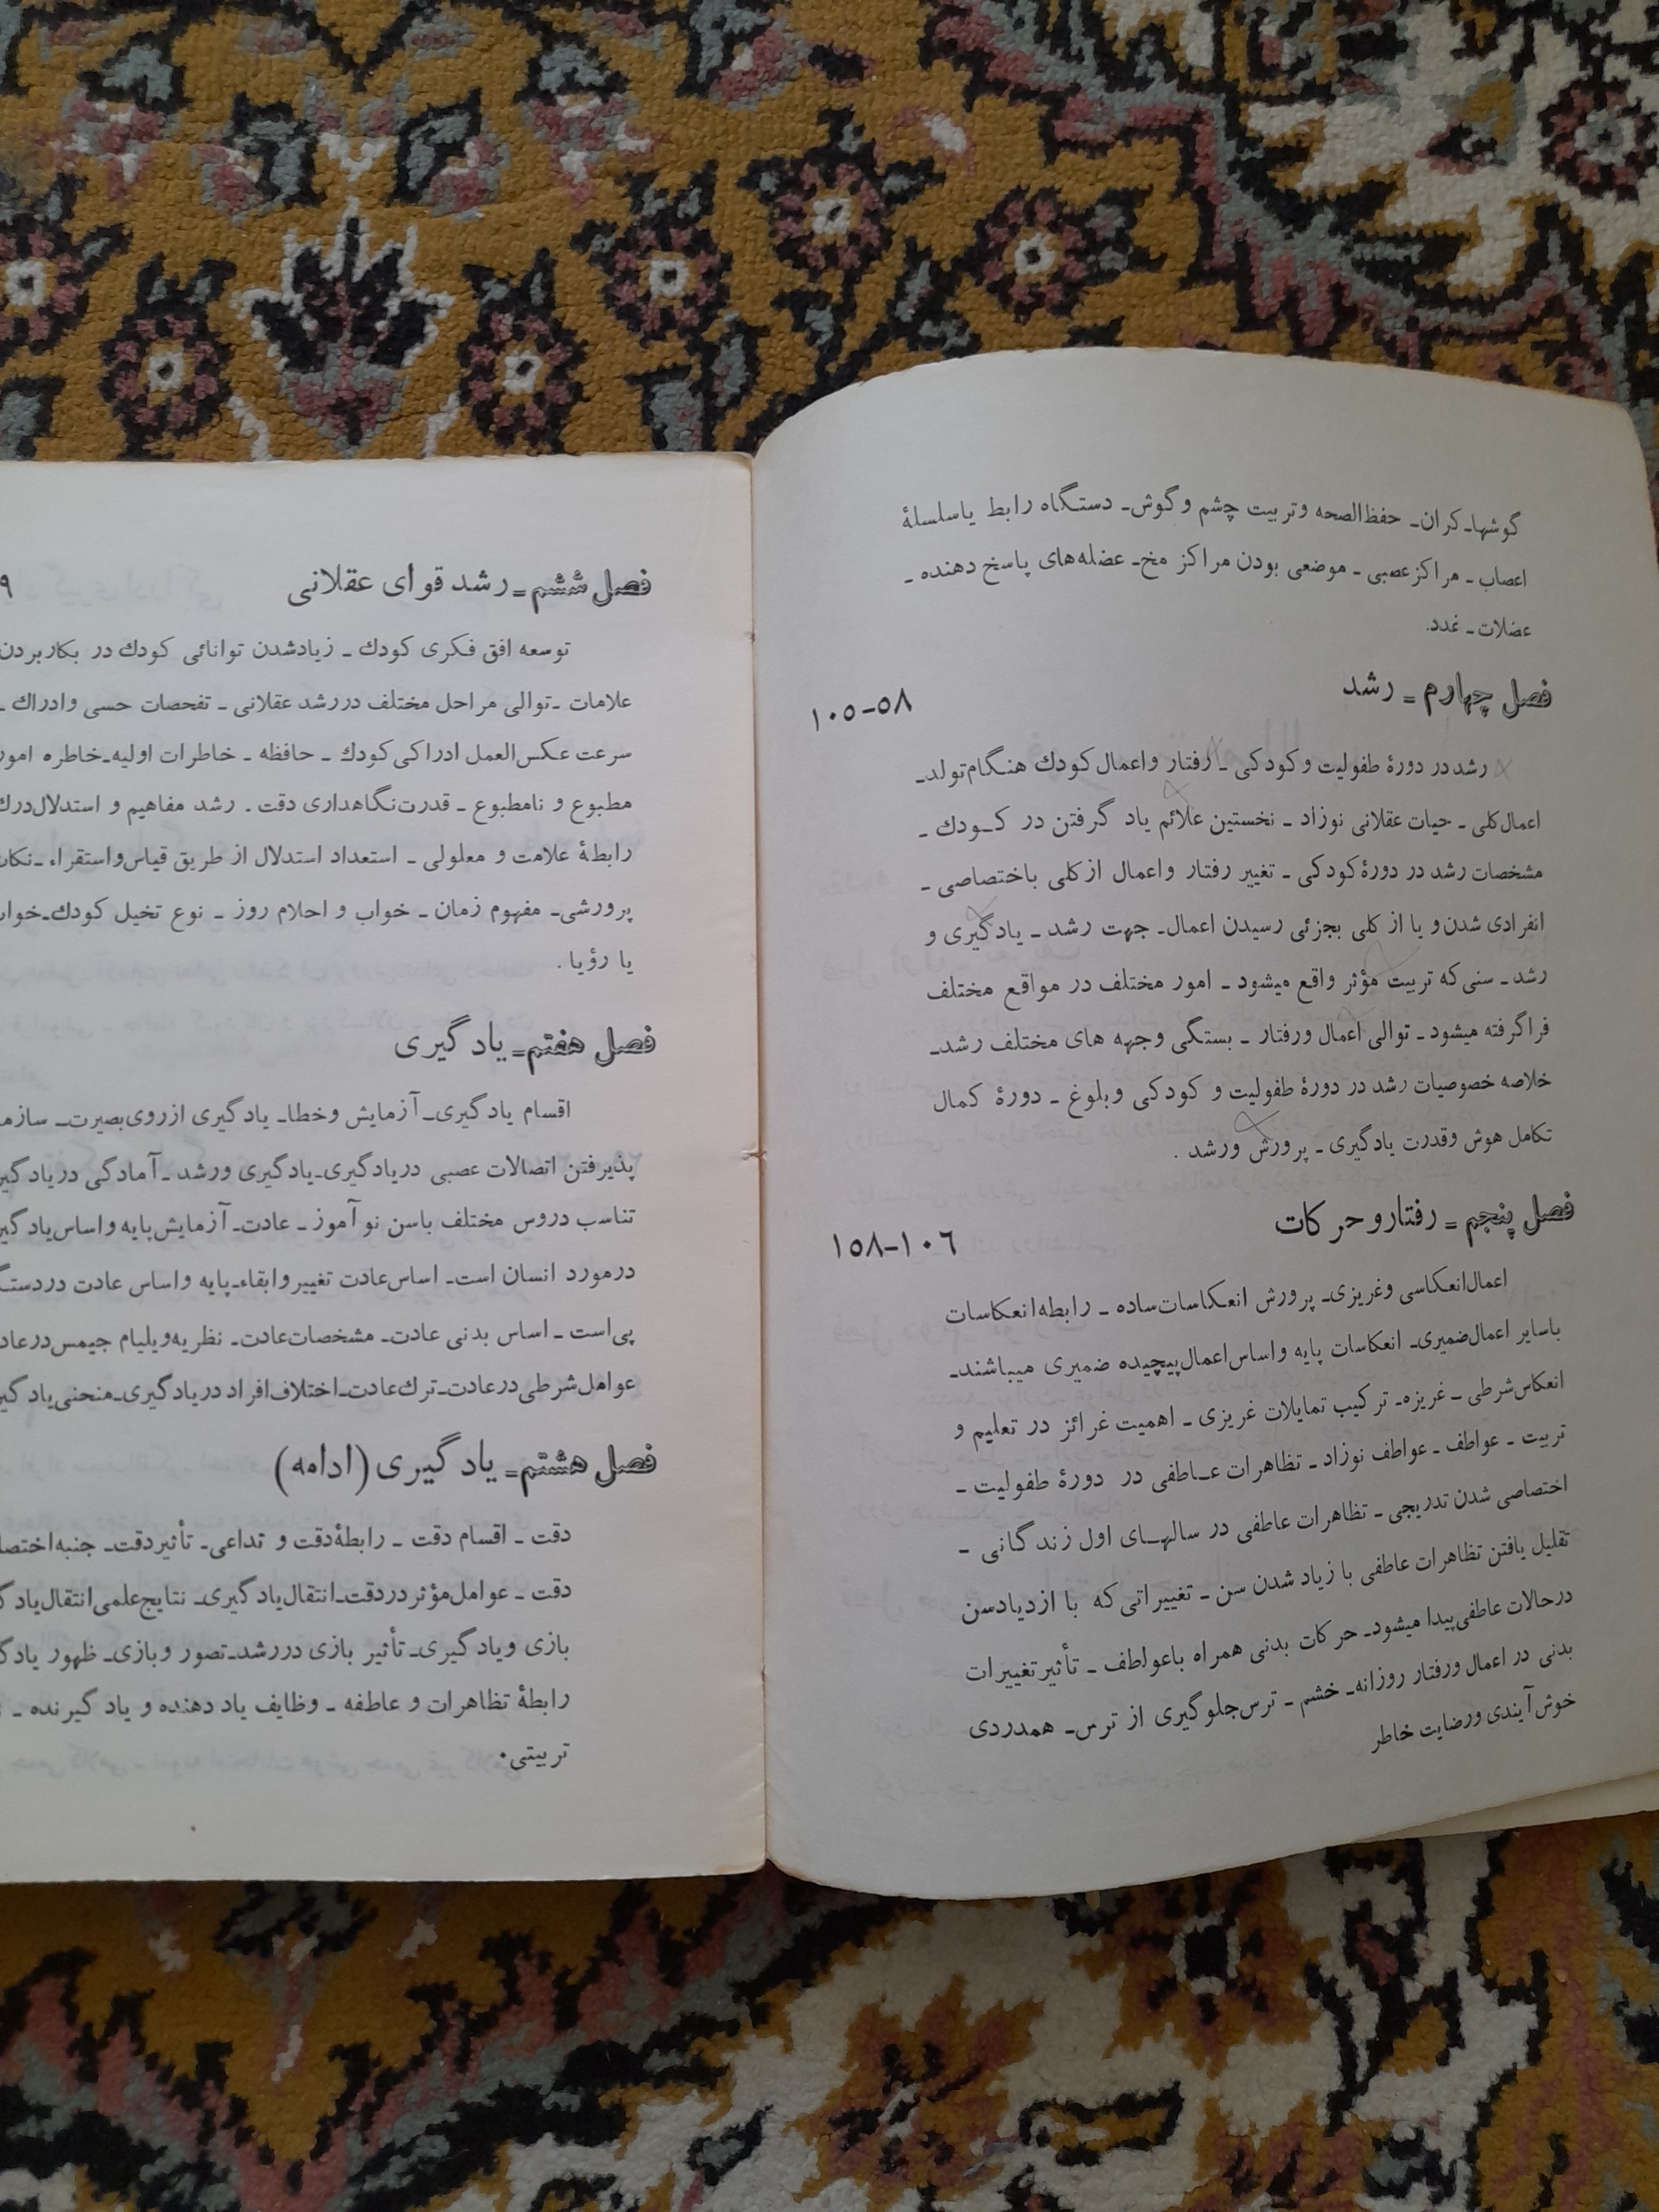 گوشها ـ کران ـ حفظ‌الصحه و تربیت چشم و گوش ـ دستگاه رابط یا سلسلهٔ
اعصاب ـ مراکز عصبی ـ موضعی بودن مراکز مخ ـ عضله‌های پاسخ دهنده ـ
عضلات ـ غدد.
فصل چهارم = رشد ۵۸-۱۰۵
رشد در دورهٔ طفولیت و کودکی ـ رفتار و اعمال کودك هنگام تولد ـ
اعمال کلی ـ حیات عقلانی نوزاد ـ نخستین علائم یاد گرفتن در کـودك ـ
مشخصات رشد در دورهٔ کودکی ـ تغییر رفتار و اعمال از کلی باختصاصی ـ
انفرادی شدن و یا از کلی بجزئی رسیدن اعمال ـ جهت رشد ـ یادگیری و
رشد ـ سنی که تربیت مؤثر واقع میشود ـ امور مختلف در مواقع مختلف
فراگرفته میشود ـ توالی اعمال ورفتار ـ بستگی وجهه های مختلف رشد ـ
خلاصه خصوصیات رشد در دورهٔ طفولیت و کودکی و بلوغ ـ دورهٔ کمال
تکامل هوش وقدرت یادگیری ـ پرورش ورشد .
فصل پنجم = رفتار و حرکات ۱۰۶-۱۵۸
اعمال انعکاسی و غریزی ـ پرورش انعکاسات ساده ـ رابطه انعکاسات
باسایر اعمال ضمیری ـ انعکاسات پایه و اساس اعمال پیچیده ضمیری میباشند ـ
انعکاس شرطی ـ غریزه ـ ترکیب تمایلات غریزی ـ اهمیت غرائز در تعلیم و
تربیت ـ عواطف ـ عواطف نوزاد ـ تظاهرات عـاطفی در دورهٔ طفولیت ـ
اختصاصی شدن تدریجی ـ تظاهرات عاطفی در سالهـای اول زندگانی ـ
تقلیل یافتن تظاهرات عاطفی با زیاد شدن سن ـ تغییراتی که با ازدیاد سن
درحالات عاطفی پیدا میشود ـ حرکات بدنی همراه باعواطف ـ تأثیر تغییرات
بدنی در اعمال ورفتار روزانه ـ خشم ـ ترس جلوگیری از ترس ـ همدردی
خوش آیندی ورضایت خاطر
فصل ششم = رشد قوای عقلانی ۹
توسعه افق فکری کودك ـ زیادشدن توانائی کودك در بکار بردن
علامات ـ توالی مراحل مختلف در رشد عقلانی ـ تفحصات حسی و ادراك ـ
سرعت عکس‌العمل ادراکی کودك ـ حافظه ـ خاطرات اولیه ـ خاطره امور
مطبوع و نامطبوع ـ قدرت نگاهداری دقت . رشد مفاهیم و استدلال درك
رابطهٔ علامت و معلولی ـ استعداد استدلال از طریق قیاس و استقراء ـ
پرورشی ـ مفهوم زمان ـ خواب و احلام روز ـ نوع تخیل کودك ـ
یا رؤیا .
فصل هفتم = یادگیری
اقسام یادگیری ـ آزمایش وخطا ـ یادگیری ازروی بصیرت ـ
پذیرفتن اتصالات عصبی دریادگیری ـ یادگیری ورشد ـ آمادگی
تناسب دروس مختلف باسن نو آموز ـ عادت ـ آزمایش پایه و اساس
درمورد انسان است ـ اساس عادت تغییر وابقاء ـ پایه و اساس عادت
پی است ـ اساس بدنی عادت ـ مشخصات عادت ـ نظریه ویلیام جیمس
عوامل شرطی درعادت ـ ترك عادت ـ اختلاف افراد دریادگیری ـ منحنی
فصل هشتم = یادگیری (ادامه)
دقت ـ اقسام دقت ـ رابطهٔ دقت و تداعی ـ تأثیر دقت ـ جنبه
دقت ـ عوامل مؤثر دردقت ـ انتقال یادگیری ـ نتایج علمی انتقال
بازی و یادگیری ـ تأثیر بازی دررشد ـ تصور وبازی ـ ظهور
رابطهٔ تظاهرات و عاطفه ـ وظایف یاد دهنده و یاد گیرنده ـ
تربیتی.